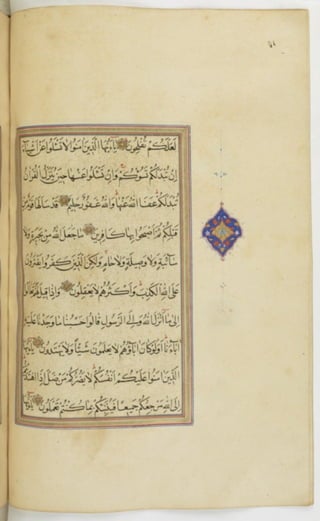 لَعَلَّكُمْ تُفْلِحُونَ يَا أَيُّهَا الَّذِينَ آمَنُوا لَا تَسْئَلُوا عَنْ أَشْيَاءَ
إِنْ تُبْدَ لَكُمْ تَسُؤْكُمْ وَإِنْ تَسْئَلُوا عَنْهَا حِينَ يُنَزَّلُ الْقُرْآنُ
تُبْدَ لَكُمْ عَفَا اللَّهُ عَنْهَا وَاللَّهُ غَفُورٌ حَلِيمٌ قَدْ سَأَلَهَا قَوْمٌ مِنْ
قَبْلِكُمْ ثُمَّ أَصْبَحُوا بِهَا كَافِرِينَ مَا جَعَلَ اللَّهُ مِنْ بَحِيرَةٍ وَلَا
سَائِبَةٍ وَلَا وَصِيلَةٍ وَلَا حَامٍ وَلَكِنَّ الَّذِينَ كَفَرُوا يَفْتَرُونَ
عَلَى اللَّهِ الْكَذِبَ وَأَكْثَرُهُمْ لَا يَعْقِلُونَ وَإِذَا قِيلَ لَهُمْ تَعَالَوْا
إِلَى مَا أَنْزَلَ اللَّهُ وَإِلَى الرَّسُولِ قَالُوا حَسْبُنَا مَا وَجَدْنَا عَلَيْهِ
آبَاءَنَا أَوَلَوْ كَانَ آبَاؤُهُمْ لَا يَعْلَمُونَ شَيْئًا وَلَا يَهْتَدُونَ يَا أَيُّهَا
الَّذِينَ آمَنُوا عَلَيْكُمْ أَنْفُسَكُمْ لَا يَضُرُّكُمْ مَنْ ضَلَّ إِذَا اهْتَدَيْتُمْ
إِلَى اللَّهِ مَرْجِعُكُمْ جَمِيعًا فَيُنَبِّئُكُمْ بِمَا كُنْتُمْ تَعْمَلُونَ يَا أَيُّهَا